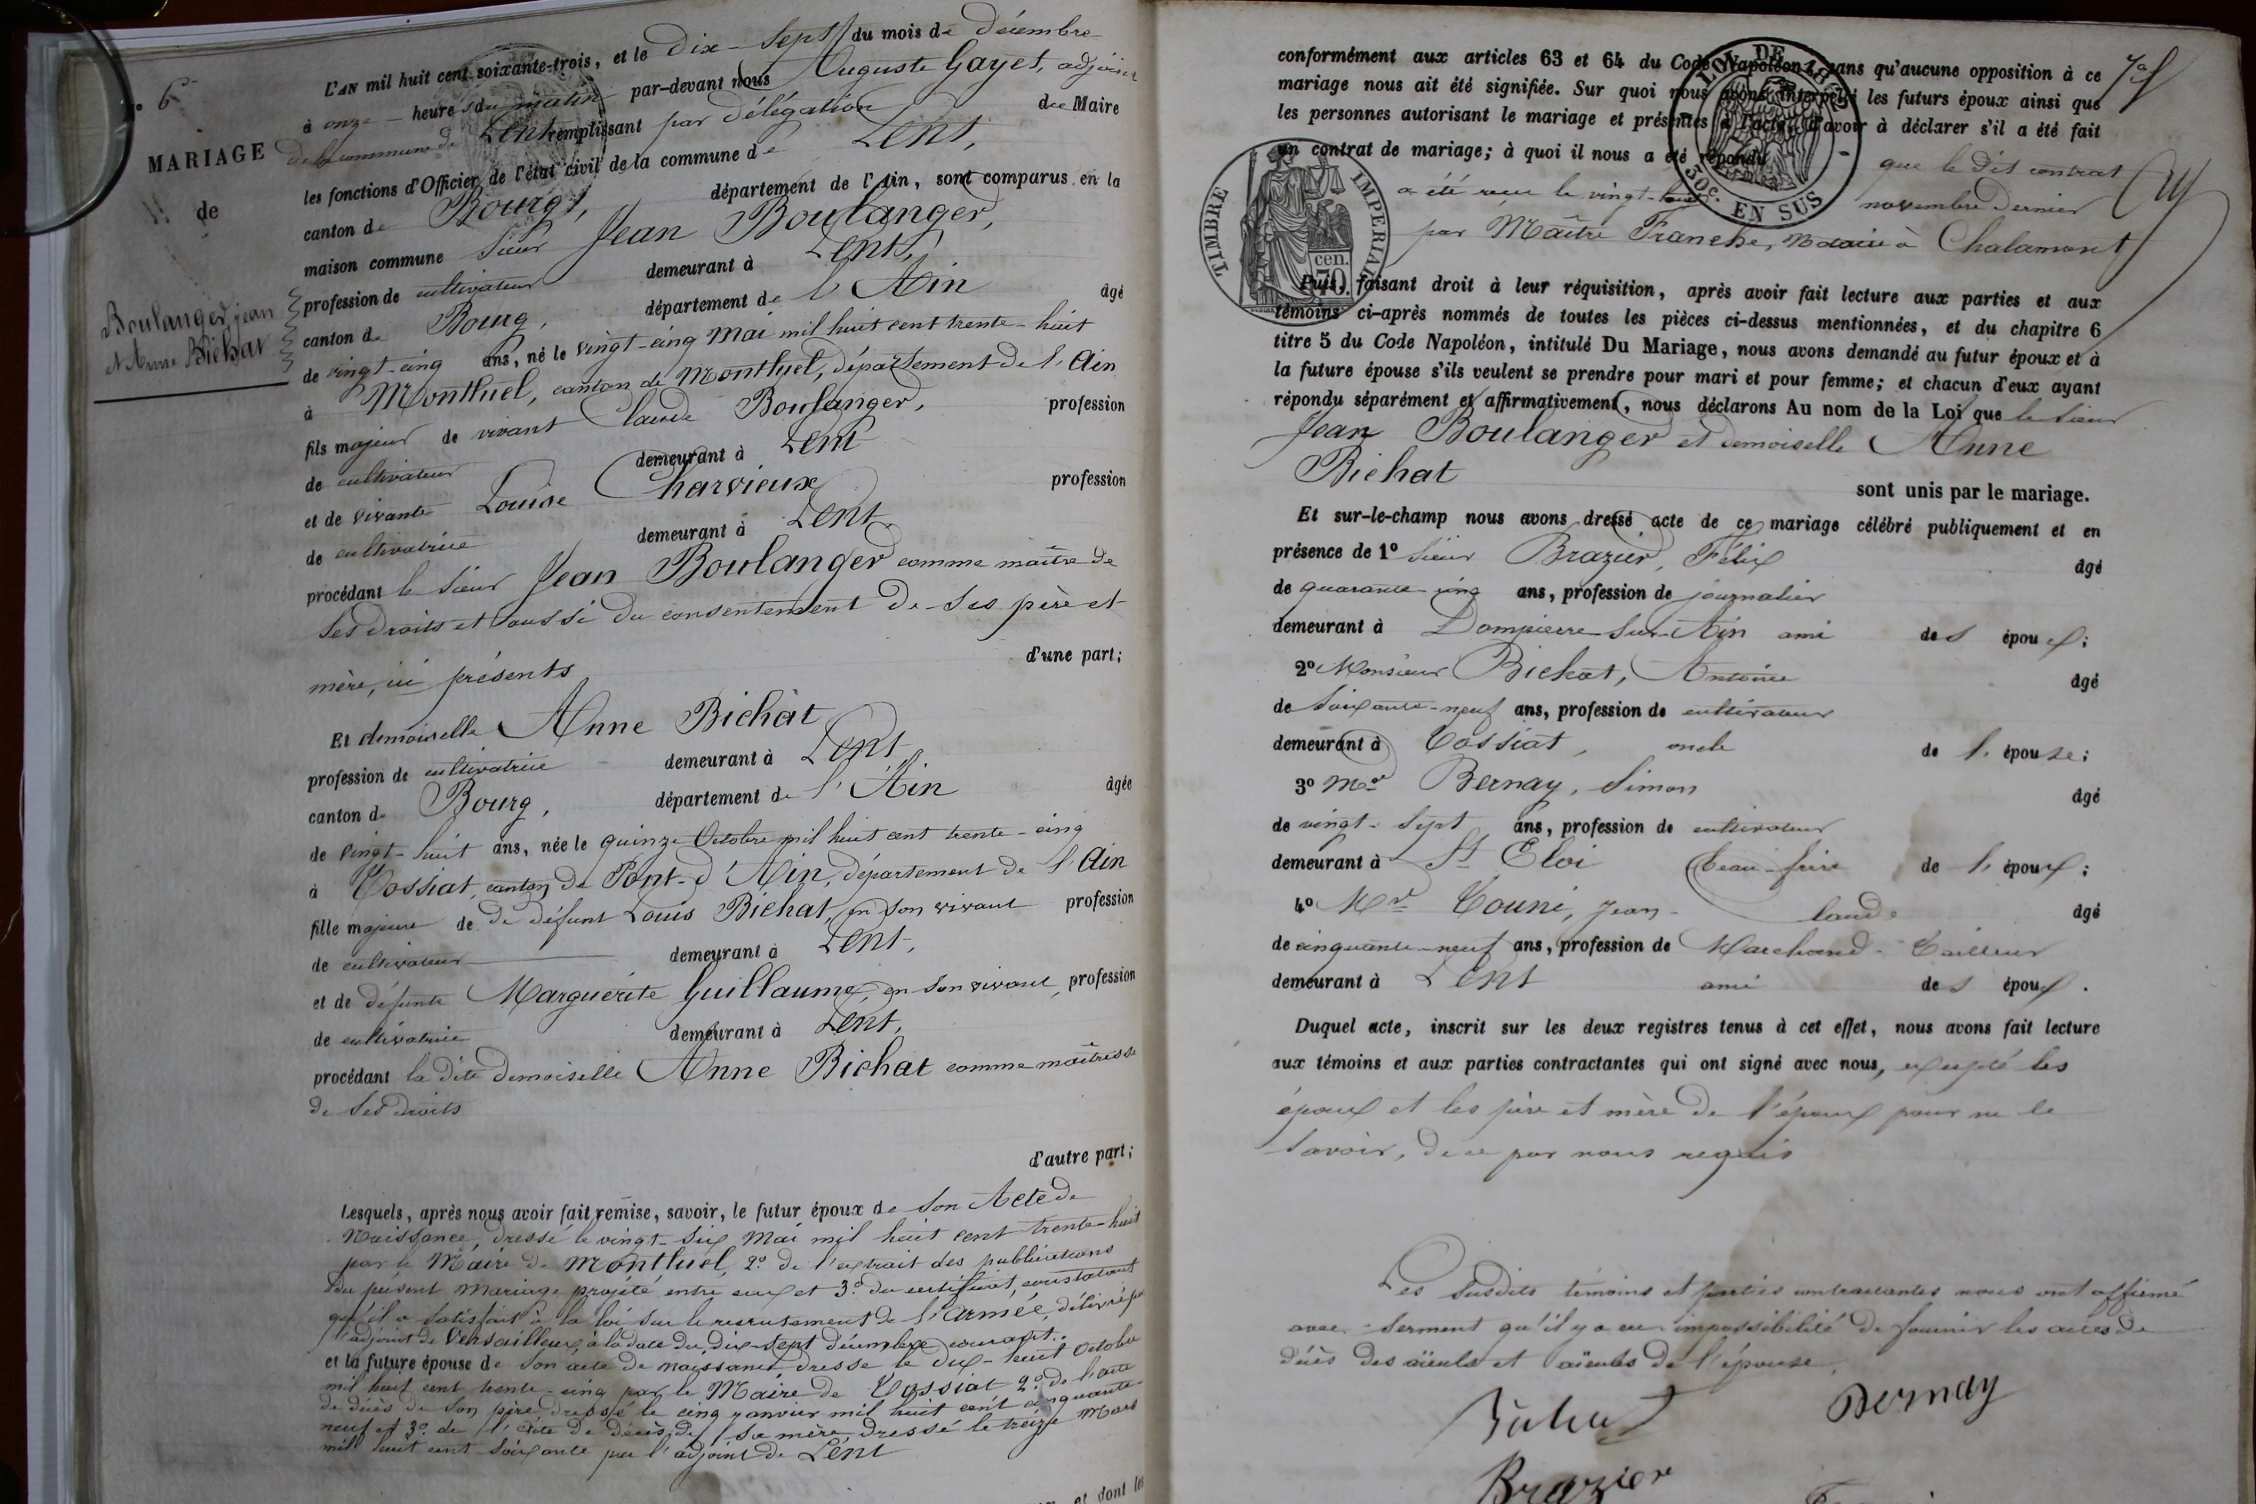 6
MARIAGE
de
Boulanger, jean
et Anne Bichat
L'AN mil huit cent soixante-trois, et le dix-sept du mois de décembre
à onze heures du matin par-devant nous Auguste Gayet, adjoint
de la commune de Lent remplissant par délégation du Maire
les fonctions d'Officier de l'état civil de la commune de Lent,
canton de Bourg, département de l'Ain, sont comparus en la
maison commune sieur Jean Boulanger,
profession de cultivateur demeurant à Lent,
canton de Bourg, département de l'Ain âgé
de vingt-cinq ans, né le vingt-cinq Mai mil huit cent trente-huit
à Montluel, canton de Montluel, département de l'Ain
fils majeur de vivant Claude Boulanger, profession
de cultivateur demeurant à Lent
et de vivante Louise Charvieux profession
de cultivatrice demeurant à Lent
procédant le sieur Jean Boulanger comme maître de
ses droits et aussi du consentement de ses père et
mère, ici présents d'une part;
Et demoiselle Anne Bichat
profession de cultivatrice demeurant à Lent,
canton de Bourg, département de l'Ain âgée
de vingt-huit ans, née le quinze Octobre mil huit cent trente-cinq
à Tossiat, canton de Pont-d'Ain, département de l'Ain
fille majeure de de défunt Louis Bichat, en son vivant profession
de cultivateur demeurant à Lent,
et de défunte Marguerite Guillaume, en son vivant, profession
de cultivatrice demeurant à Lent,
procédant la dite demoiselle Anne Bichat comme maîtresse
de ses droits
d'autre part;
Lesquels, après nous avoir fait remise, savoir, le futur époux de son Acte de
Naissance, dressé le vingt-six Mai mil huit cent trente-huit
par le Maire de Montluel, 2º de l'extrait des publications
du présent mariage projeté entre eux et 3º du certificat, constatant
qu'il a satisfait à la loi sur le recrutement de l'armée, délivré par
l'adjoint de Versailleux, à la date du dix-sept décembre courant.
et la future épouse de son acte de naissance dressé le dix-huit Octobre
mil huit cent trente-cinq par le Maire de Tossiat 2º de l'acte
de décès de son père dressé le cinq janvier mil huit cent cinquante
neuf et 3º de l'acte de décès de sa mère dressé le treize Mars
mil huit cent soixante par l'adjoint de Lent
et dont les
conformément aux articles 63 et 64 du Code Napoléon, sans qu'aucune opposition à ce
mariage nous ait été signifiée. Sur quoi nous avons interpellé les futurs époux ainsi que
les personnes autorisant le mariage et présentes à l'acte, d'avoir à déclarer s'il a été fait
un contrat de mariage; à quoi il nous a été répondu que le dit contrat
a été reçu le novembre dernier
par Maître Franche, Notaire à Chalamont
LOI DE
50c. EN SUS
TIMBRE IMPERIAL
cen.
70.
Puis, faisant droit à leur réquisition, après avoir fait lecture aux parties et aux
témoins ci-après nommés de toutes les pièces ci-dessus mentionnées, et du chapitre 6
titre 5 du Code Napoléon, intitulé Du Mariage, nous avons demandé au futur époux et à
la future épouse s'ils veulent se prendre pour mari et pour femme; et chacun d'eux ayant
répondu séparément et affirmativement, nous déclarons Au nom de la Loi que le sieur
Jean Boulanger et demoiselle Anne
Bichat
sont unis par le mariage.
Et sur-le-champ nous avons dressé acte de ce mariage célébré publiquement et en
présence de 1º sieur Brazier, Félix âgé
de quarante-cinq ans, profession de journalier
demeurant à Dompierre-sur-Ain ami des époux;
2º Monsieur Bichat, Antoine âgé
de soixante-neuf ans, profession de cultivateur
demeurant à Tossiat, oncle de l'épouse;
3º Mr Bernay, Simon âgé
de vingt-sept ans, profession de cultivateur
demeurant à St Eloi beau-frère de l'époux;
4º Mr Jean-Claude âgé
de cinquante-neuf ans, profession de Marchand-Tailleur
demeurant à Lent ami des époux.
Duquel acte, inscrit sur les deux registres tenus à cet effet, nous avons fait lecture
aux témoins et aux parties contractantes qui ont signé avec nous, excepté les
époux et les père et mère de l'époux pour ne le
savoir, de ce par nous requis
Les susdits témoins et parties contractantes nous ont affirmé
avec serment qu'il y a eu impossibilité de fournir les actes de
décès des aïeuls et aïeules de l'épouse.
Bichat Bernay
Brazier